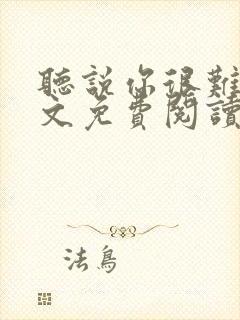 聽說你很難
文免費閱讀
法鳥